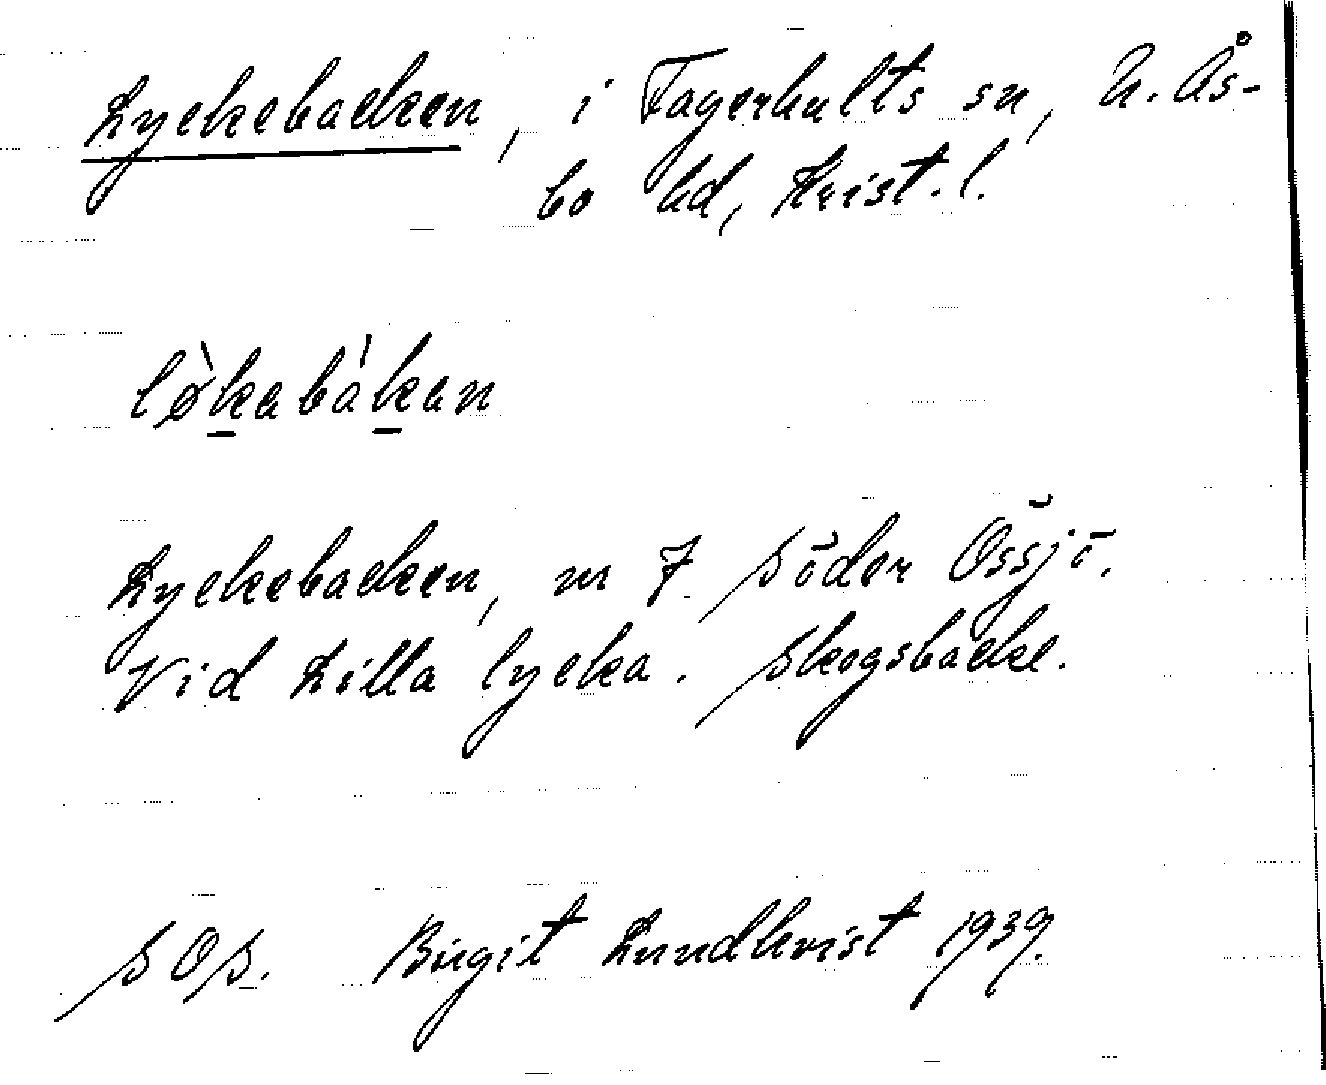 Lyckebacken, i Fagerhults sn, N. Ås-
bo hd, Krist. l.
lø̀kabákan
Lyckebacken, m 7 Söder Össjö.
Vid Lilla lycka. Skogsbacke.
SOS. Birgit Lundkvist 1939.